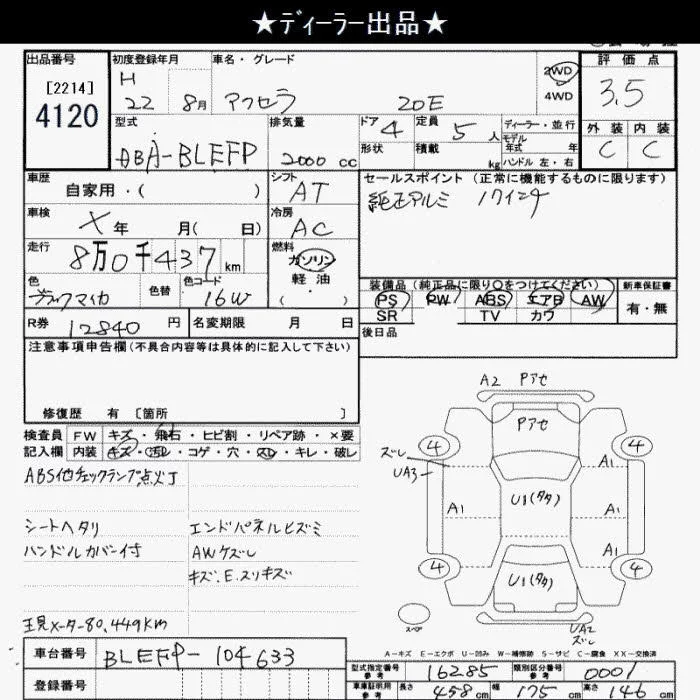 ★ディーラー出品★
出品番号
[2214]
4120
初度登録年月
H 22 8月
車名・グレード
アクセラ 20E
2WD
4WD
評価点
3.5
外装 内装
C C
型式
ABA-BLEFP
排気量
2000 cc
ドア 4
形状
定員 5 人
積載 kg
ディーラー・並行
モデル年式 年
ハンドル 左・右
車歴
自家用・( )
シフト
AT
セールスポイント (正常に機能するものに限ります)
純正アルミ 17インチ
車検
X 年 月( 日)
冷房
AC
走行
8万0千437 km
燃料
ガソリン
軽油
( ・ )
色
色替
色コード
16W
装備品 (純正品に限り○をつけてください)
PS PW ABS エアB AW
SR TV カワ
新車保証書
有・無
R券 12840 円
名変期限 月 日
後日品
注意事項申告欄 (不具合内容等は具体的に記入して下さい)
修復歴 有 [箇所 ]
検査員記入欄
FW キズ・飛石・ヒビ割・リペア跡・×要
内装 キズ・汚レ・コゲ・穴・スレ・キレ・破レ
ABS他チェックランプ点灯
シートヘタリ
ハンドルカバー付
エンドパネルヒズミ
AWケズレ
キズ、E、スリキズ
現メーター80,449KM
A2 Pアセ
Pアセ
4 4
ズレ
UA3
A1
U1(タタ)
A1 A1
A1
4 4
U1(タタ)
スペア
UA2
ズレ
A-キズ E-エクボ U-凹み W-補修跡 S-サビ C-腐食 XX-交換済
車台番号
BLEFP-104633
登録番号
型式指定番号 参考
16285
類別区分番号 参考
0001
車庫証明用 参考
長さ 458 cm
幅 175 cm
高さ 146 cm